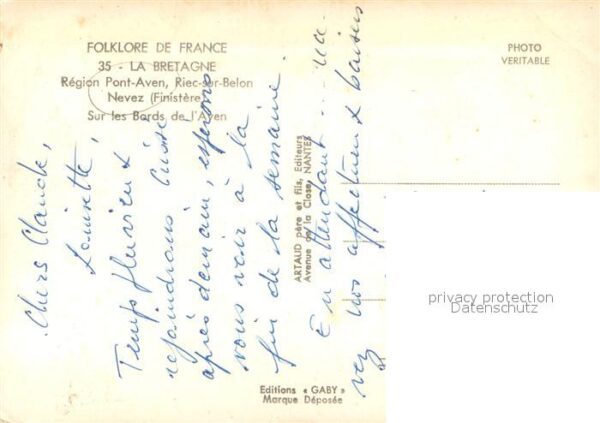 FOLKLORE DE FRANCE
35 - LA BRETAGNE
Région Pont-Aven, Riec-sur-Belon
Nevez (Finistère)
Sur les Bords de l'Aven
PHOTO
VERITABLE
Chers Claude,
Louisette,
Temps fluvieux
rejoindrons
après demain, espérons
vous voir à la
fin de la semaine.
En attendant ...
vez nos affectueux baisers
ARTAUD père et fils, Editeurs
Avenue de la Close, NANTES
Editions « GABY »
Marque Déposée
privacy protection
Datenschutz